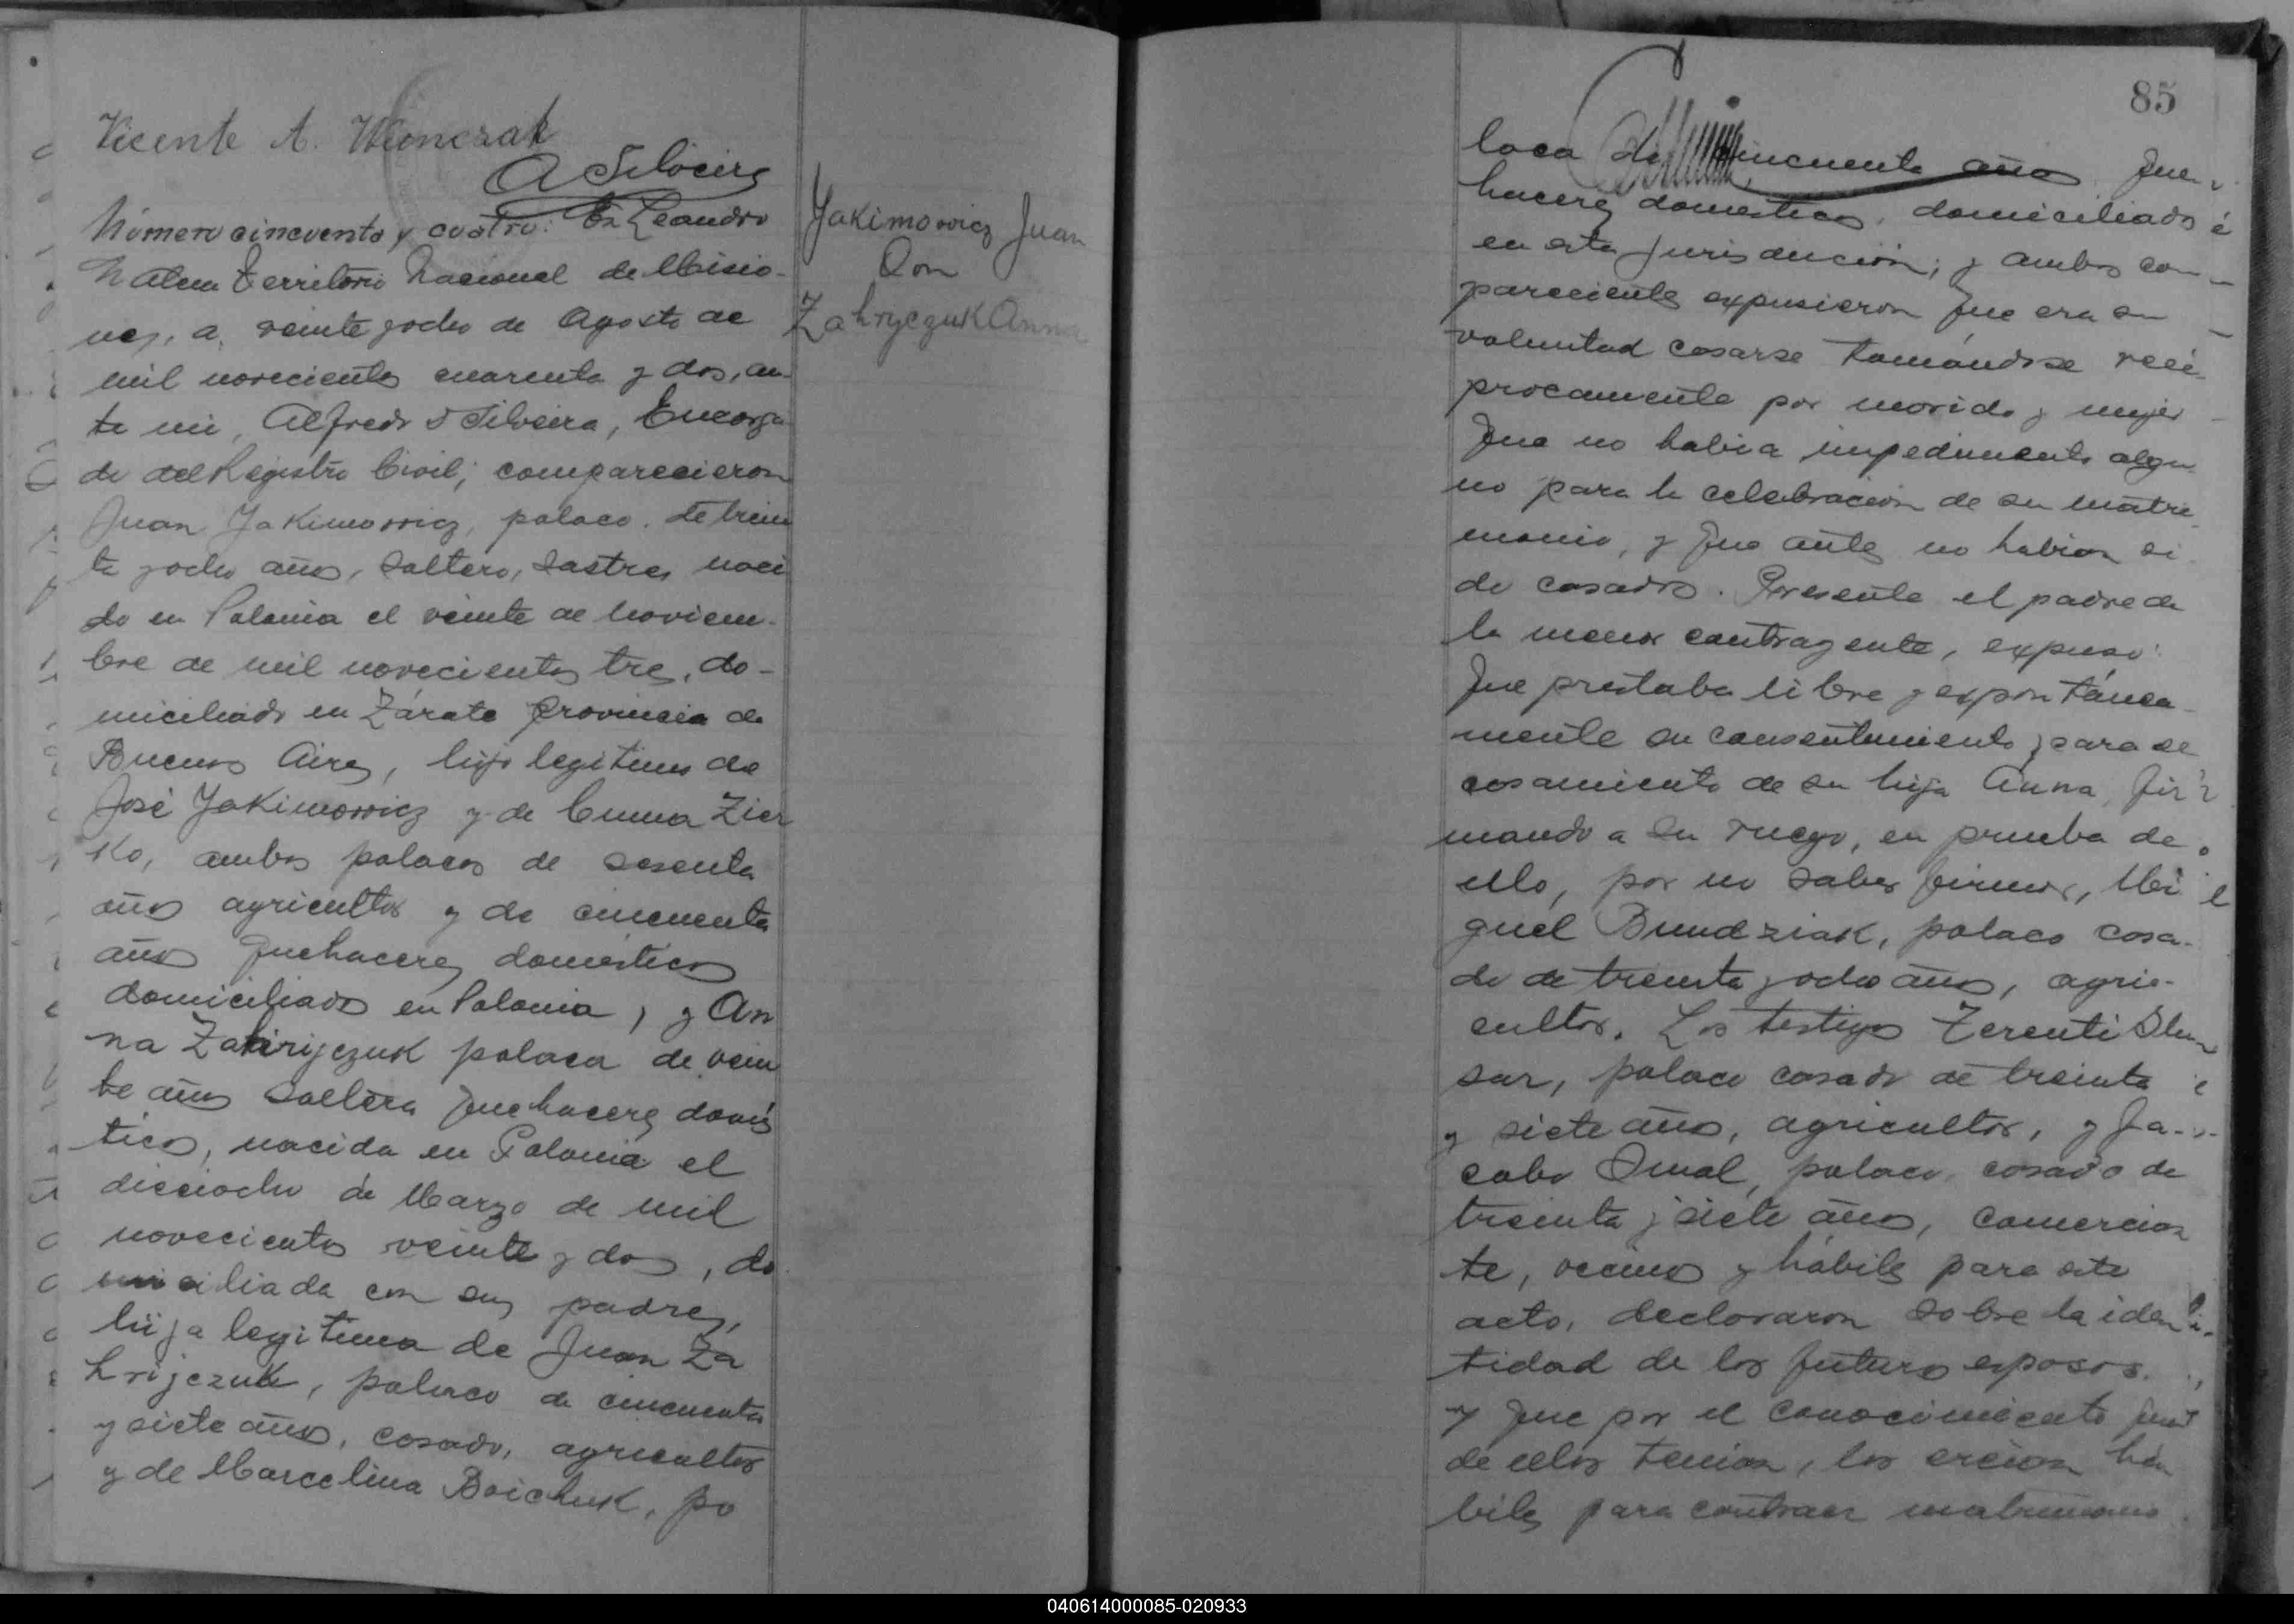 Vicente A. Wionczak
A Silveira
Número cincuenta y cuatro: En Leandro
N Alem Territorio Nacional de Misio-
nes, a, veinte y ocho de Agosto de
mil novecientos cuarenta y dos, an-
te mi, Alfredo D Silveira, Encarga-
do del Registro Civil; comparecieron
Juan Yakimowicz, polaco, de trein
ta y ocho años, soltero, sastre, naci
do en Polonia el veinte de noviem-
bre de mil novecientos tres, do-
miciliado en Zárate Provincia de
Buenos Aires, hijo legitimo de
José Yakimowicz y de Zier
ko, ambos polacos de sesenta
años agricultor y de cincuenta
años quehaceres domésticos
domiciliados en Polonia, y An
na Zahrijczuk polaca de vein
te años soltera quehaceres domés
ticos, nacida en Polonia el
dieciocho de Marzo de mil
novecientos veinte y dos, do
miciliada con sus padres,
hija legitima de Juan Za
hrijczuk, polaco de cincuenta
y siete años, casado, agricultor
y de Marcelina Boichuk, po
Yakimowicz Juan
Con
Zahryczuk Anna
85
laca de cincuenta años que
haceres domesticos, domiciliados
en esta jurisdiccion; y ambos com-
parecientes expusieron que era su
voluntad casarse tomándose reci-
procamente por marido y mujer
que no habia impedimento algu-
no para la celebracion de su matri-
monio, y que antes no habian si-
do casados. Presente el padre de
la menor contrayente, expuso:
que prestaba libre y expontánea-
mente su consentimiento para el
casamiento de su hija Anna, fir
mando a su ruego, en prueba de
ello, por no saber firmar, Mi
guel Bundziak, polaco casa-
do de treinta y ocho años, agri-
cultor. Los testigos Terenti
sar, polaco casado de treinta
y siete años, agricultor, y Ja-
cobo polaco, casado de
treinta y siete años, comercian
te, vecinos y hábiles para este
acto, declararon sobre la iden
tidad de los futuros esposos.
y que por el conocimiento que
de ellos tenian, los creian há
biles para contraer matrimonio
040614000085-020933